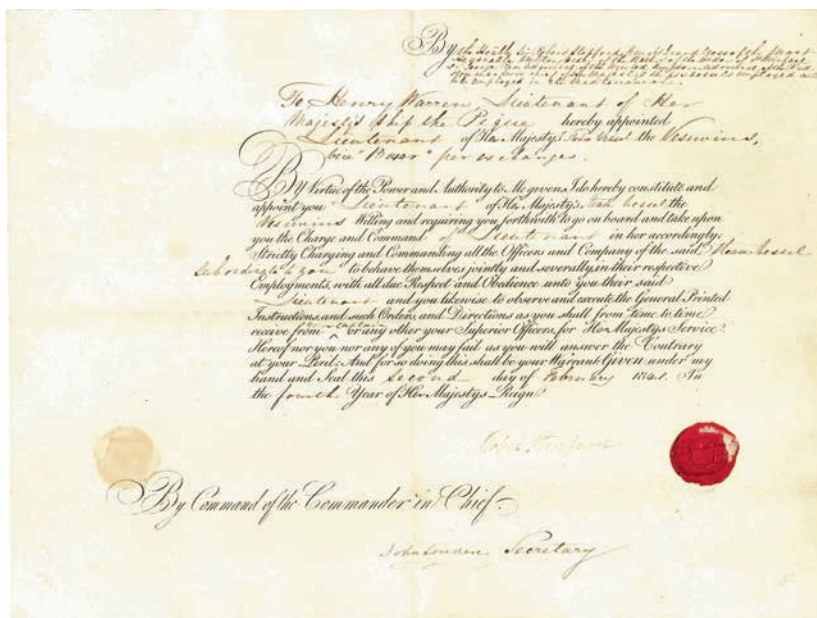 By the Honble Sir Robert Stopford
employed and
be employed in the Mediterranean
To Henry Warren, Lieutenant of Her
Majesty's Ship the Pique hereby appointed
Lieutenant of Her Majesty's Vessel the Vesuvius,
vice "Boxer" per exchange.
By Virtue of the Power and Authority to Me given, I do hereby constitute and
appoint you Lieutenant of Her Majesty's Vessel the
Vesuvius Willing and requiring you forthwith to go on board and take upon
you the Charge and Command of Lieutenant in her accordingly;
Strictly Charging and Commanding all the Officers and Company of the said Steam Vessel
subordinate to you to behave themselves jointly and severally in their respective
Employments, with all due Respect and Obedience unto you their said
Lieutenant and you likewise to observe and execute the General Printed
Instructions, and such Orders, and Directions as you shall from time to time
receive from your Captain or any other your Superior Officers, for Her Majesty's Service
Hereof nor you nor any of you may fail as you will answer the Contrary
at your Peril: And for so doing this shall be your Warrant Given under my
hand and Seal this second day of February 1841. In
the fourth Year of Her Majesty's Reign
Robert Stopford
By Command of the Commander in Chief
John Louden Secretary